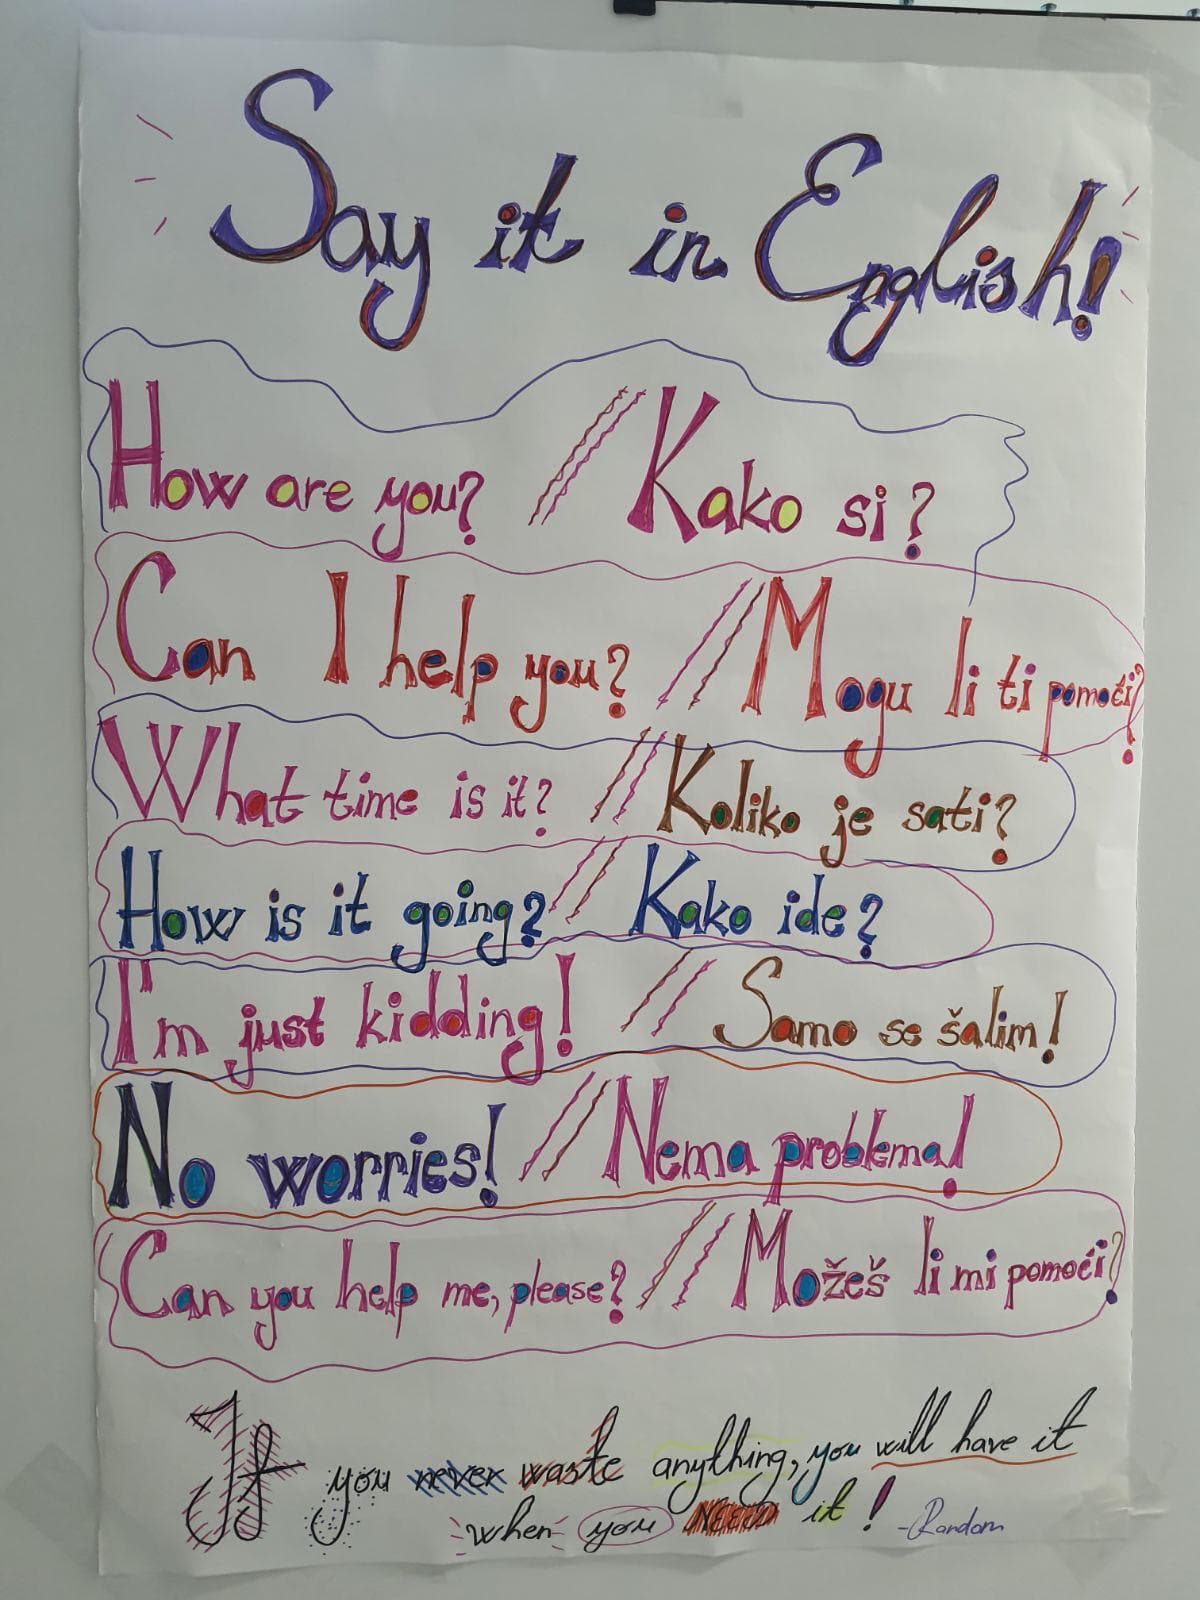 Say it in English!
How are you? // Kako si?
Can I help you? // Mogu li ti pomoći?
What time is it? // Koliko je sati?
How is it going? // Kako ide?
I'm just kidding! // Samo se šalim!
No worries! // Nema problema!
Can you help me, please? // Možeš li mi pomoći?
If you never waste anything, you will have it
when you NEED it! -Random